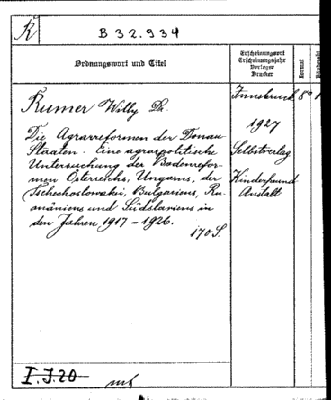 K
B 32.934
Ordnungswort und Titel
Erscheinungsort
Erscheinungsjahr
Verleger
Drucker
Format
Rumer Willy Dr.
Die Agrarreformen der Donau-
Staaten. Eine agrarpolitische
Untersuchung der Bodenrefor-
men Österreichs, Ungarns, der
Tschechoslowakei, Bulgariens, Ru-
mäniens und Südslaviens in
den Jahren 1917 – 1926.
170 S.
Innsbruck
8°
1
1927
Selbstverlag
Kinderfreund
Anstalt
I. J. 20